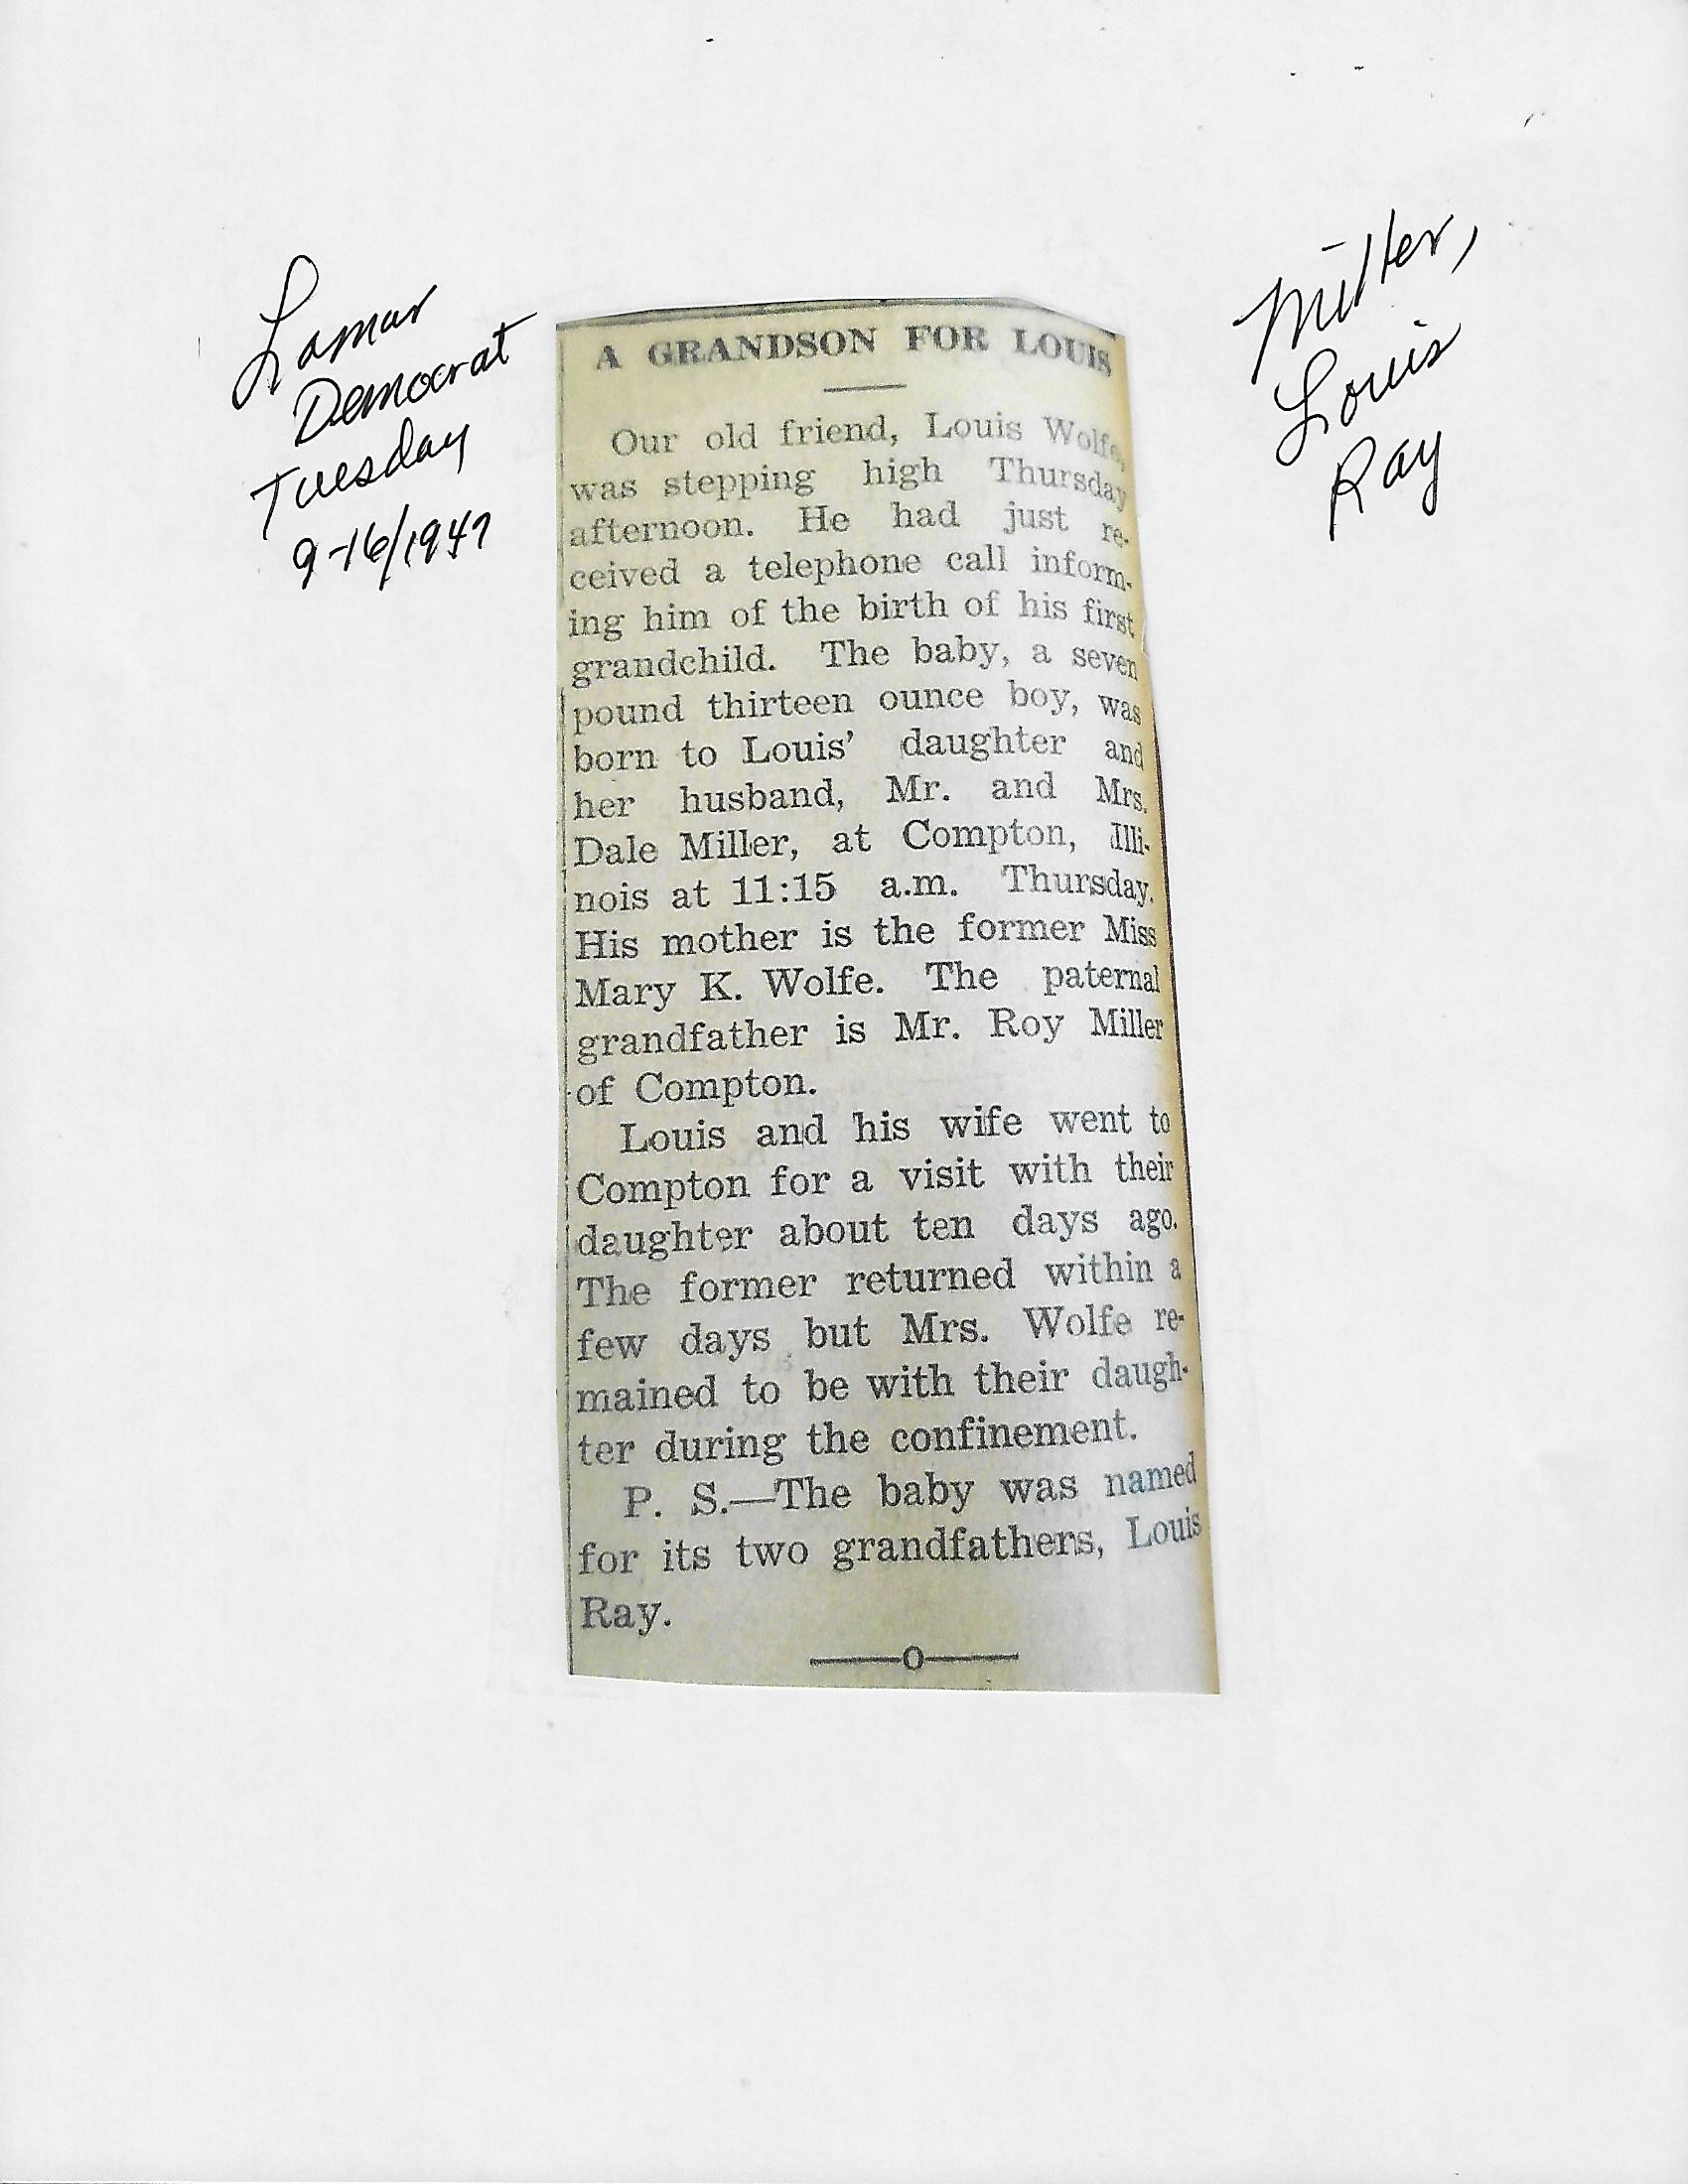 Lamar
Democrat
Tuesday
9-16/1947
Miller,
Louis
Ray
A GRANDSON FOR LOUIS
Our old friend, Louis Wolfe,
was stepping high Thursday
afternoon. He had just re-
ceived a telephone call inform-
ing him of the birth of his first
grandchild. The baby, a seven
pound thirteen ounce boy, was
born to Louis' daughter and
her husband, Mr. and Mrs.
Dale Miller, at Compton, Illi-
nois at 11:15 a.m. Thursday.
His mother is the former Miss
Mary K. Wolfe. The paternal
grandfather is Mr. Roy Miller
of Compton.
Louis and his wife went to
Compton for a visit with their
daughter about ten days ago.
The former returned within a
few days but Mrs. Wolfe re-
mained to be with their daugh-
ter during the confinement.
P. S.—The baby was named
for its two grandfathers, Louis
Ray.
——o——